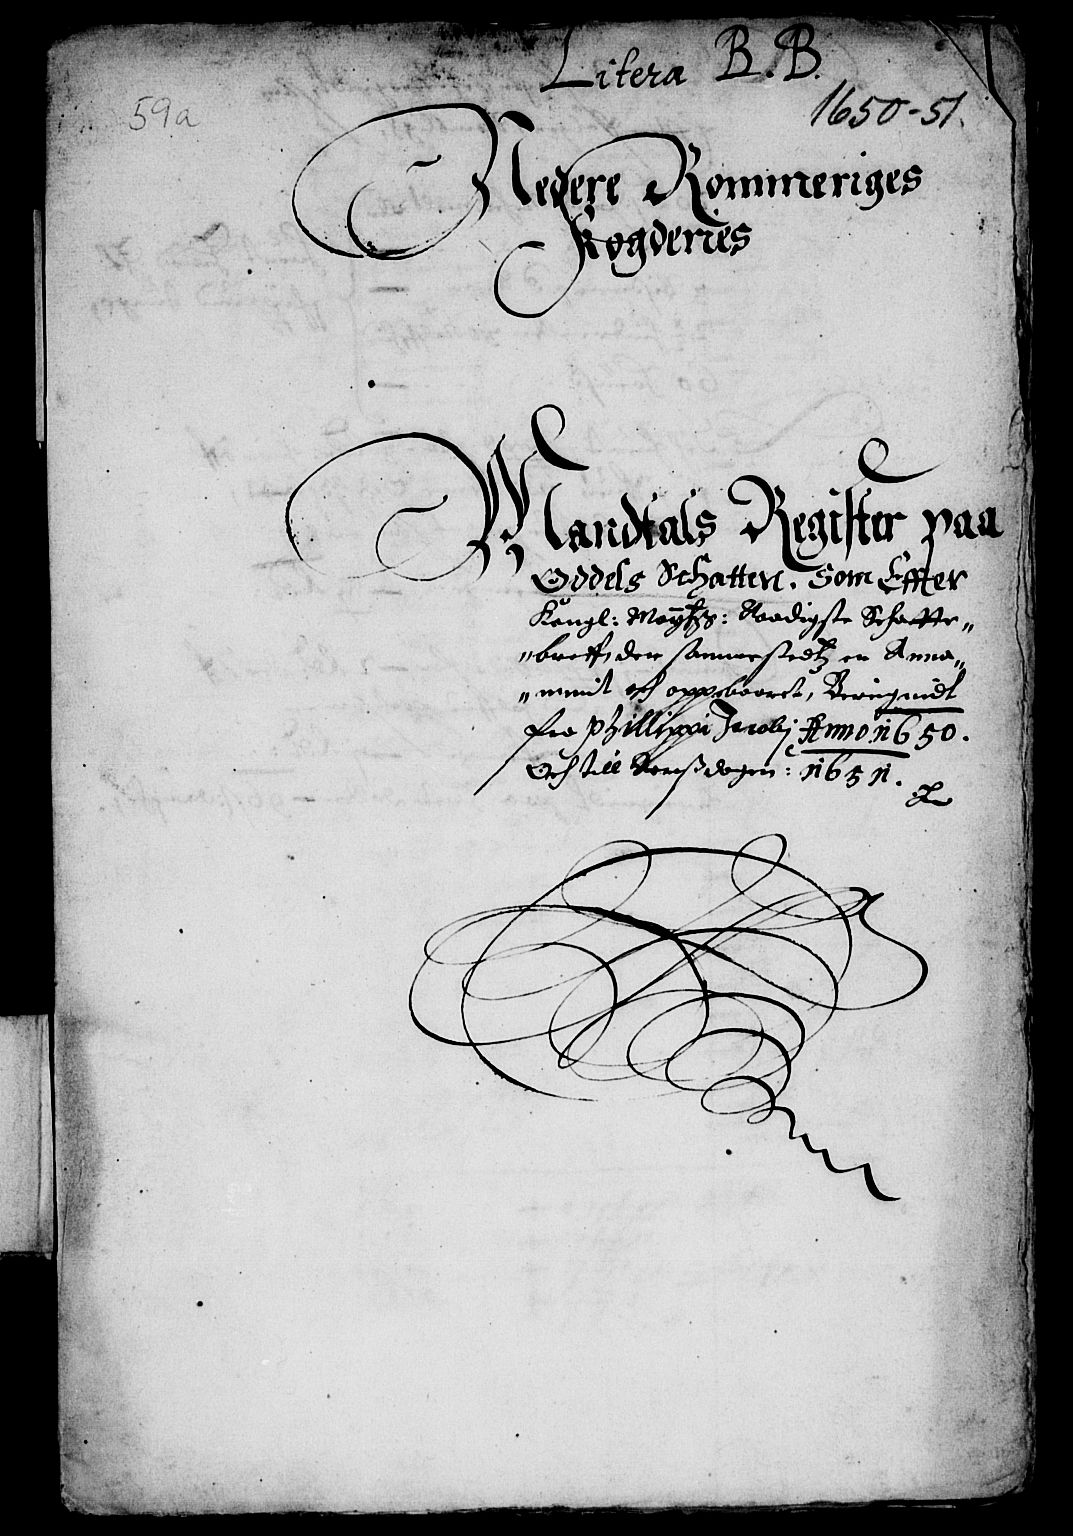 Litera B.B.
1650-51.
59a
Nedere Rommeriges
Fogderies
Mandtals Register paa
Oddels Schatten. Som Effter
Kongl: Maytz: Naadigste Schatte„
„breff, der sammestedtz er Anna„
„mmit och oppebaaret, Beregnidt
fra Phillippi Jacobj Anno 1650.
Och till Aarßdagen: 1651.